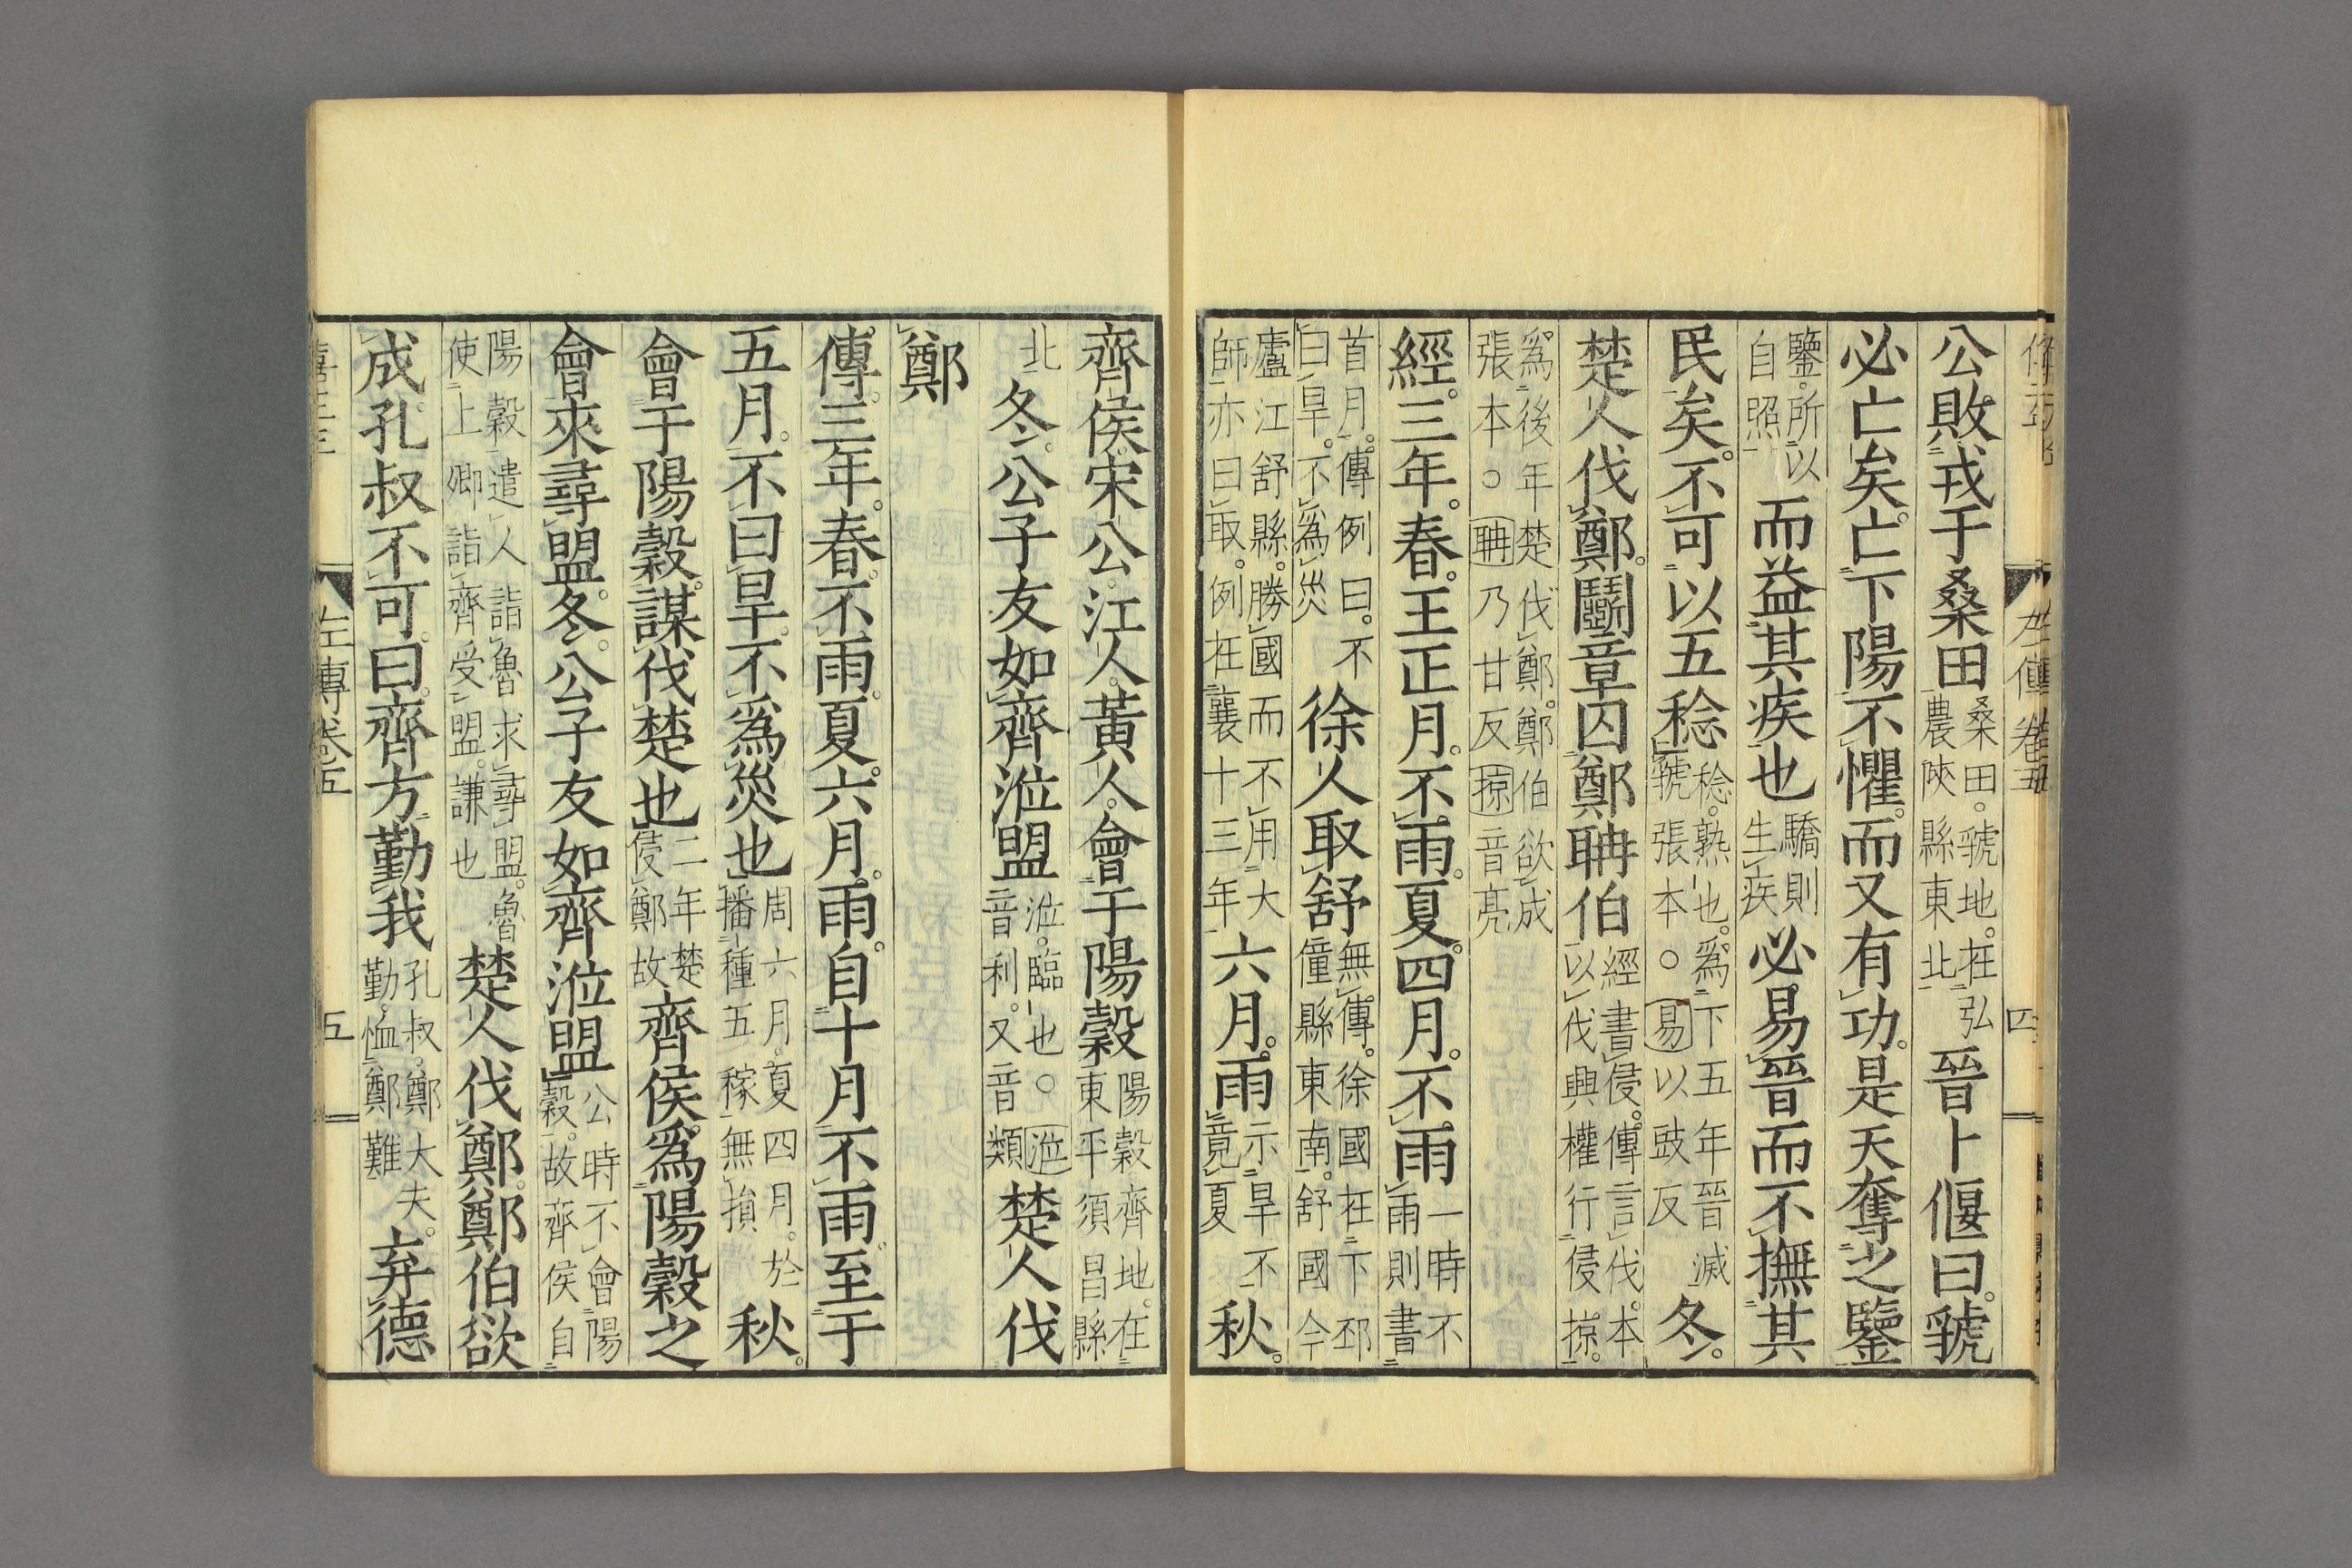 公敗戎于桑田桑田。虢地。在弘農陝縣東北晉卜偃曰。虢
必亡矣。亡下陽不懼。而又有功。是天奪之鑒
鑒。所以自照而益其疾也驕則生疾必易晉而不撫其
民矣。不可以五稔稔。熟也。爲下五年晉滅虢張本。○易以豉反冬。
楚人伐鄭。鬭章囚鄭聃伯經書侵。傳言伐。本以伐興權行侵掠。
爲後年楚伐鄭。鄭伯欲成張本。○聃乃甘反掠音亮
經。三年。春。王正月。不雨。夏。四月。不雨一時不雨則書
首月。傳例曰。不曰旱。不爲災徐人取舒無傳。徐國在下邳僮縣東南。舒國今
廬江舒縣。勝國而不用大師亦曰取。例在襄十三年六月。雨示旱不竟夏秋。
齊侯宋公。江人。黃人。會于陽穀陽穀齊地。在東平須昌縣
北冬。公子友如齊涖盟涖。臨也。○涖音利。又音類楚人伐
鄭
傳。三年。春。不雨。夏。六月。雨。自十月不雨。至于
五月。不曰旱。不爲災也周六月。夏四月。於播種五稼無損秋。
會于陽穀。謀伐楚也二年楚侵鄭故齊侯。爲陽穀之
會來尋盟。冬。公子友如齊涖盟公時不會陽穀。故齊侯自
陽穀遣人詣魯求尋盟。魯使上卿詣齊受盟。謙也楚人伐鄭。鄭伯欲
成。孔叔不可。曰。齊方勤我孔叔。鄭大夫。勤恤鄭難弃德
左傳卷五
四
左傳卷五
五